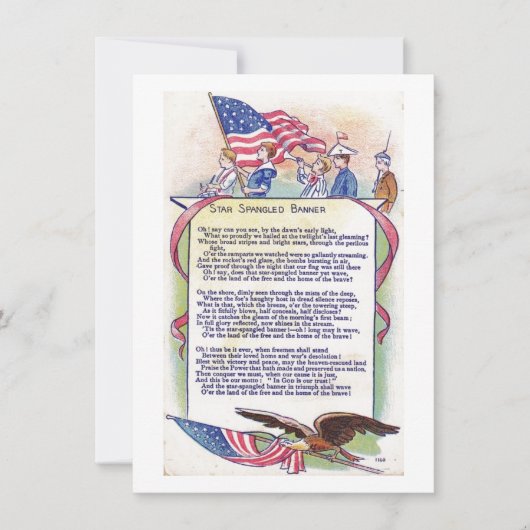 STAR SPANGLED BANNER
Oh! say can you see, by the dawn's early light,
What so proudly we hailed at the twilight's last gleaming?
Whose broad stripes and bright stars, through the perilous
fight,
O'er the ramparts we watched were so gallantly streaming.
And the rocket's red glare, the bombs bursting in air,
Gave proof through the night that our flag was still there
Oh! say, does that star-spangled banner yet wave,
O'er the land of the free and the home of the brave?
On the shore, dimly seen through the mists of the deep,
Where the foe's haughty host in dread silence reposes,
What is that, which the breeze, o'er the towering steep,
As it fitfully blows, half conceals, half discloses?
Now it catches the gleam of the morning's first beam;
In full glory reflected, now shines in the stream.
'Tis the star-spangled banner!—oh! long may it wave,
O'er the land of the free and the home of the brave!
Oh! thus be it ever, when freemen shall stand
Between their loved home and war's desolation!
Blest with victory and peace, may the heaven-rescued land
Praise the Power that hath made and preserved us a nation,
Then conquer we must, when our cause it is just,
And this be our motto: "In God is our trust!"
And the star-spangled banner in triumph shall wave
O'er the land of the free and the home of the brave!